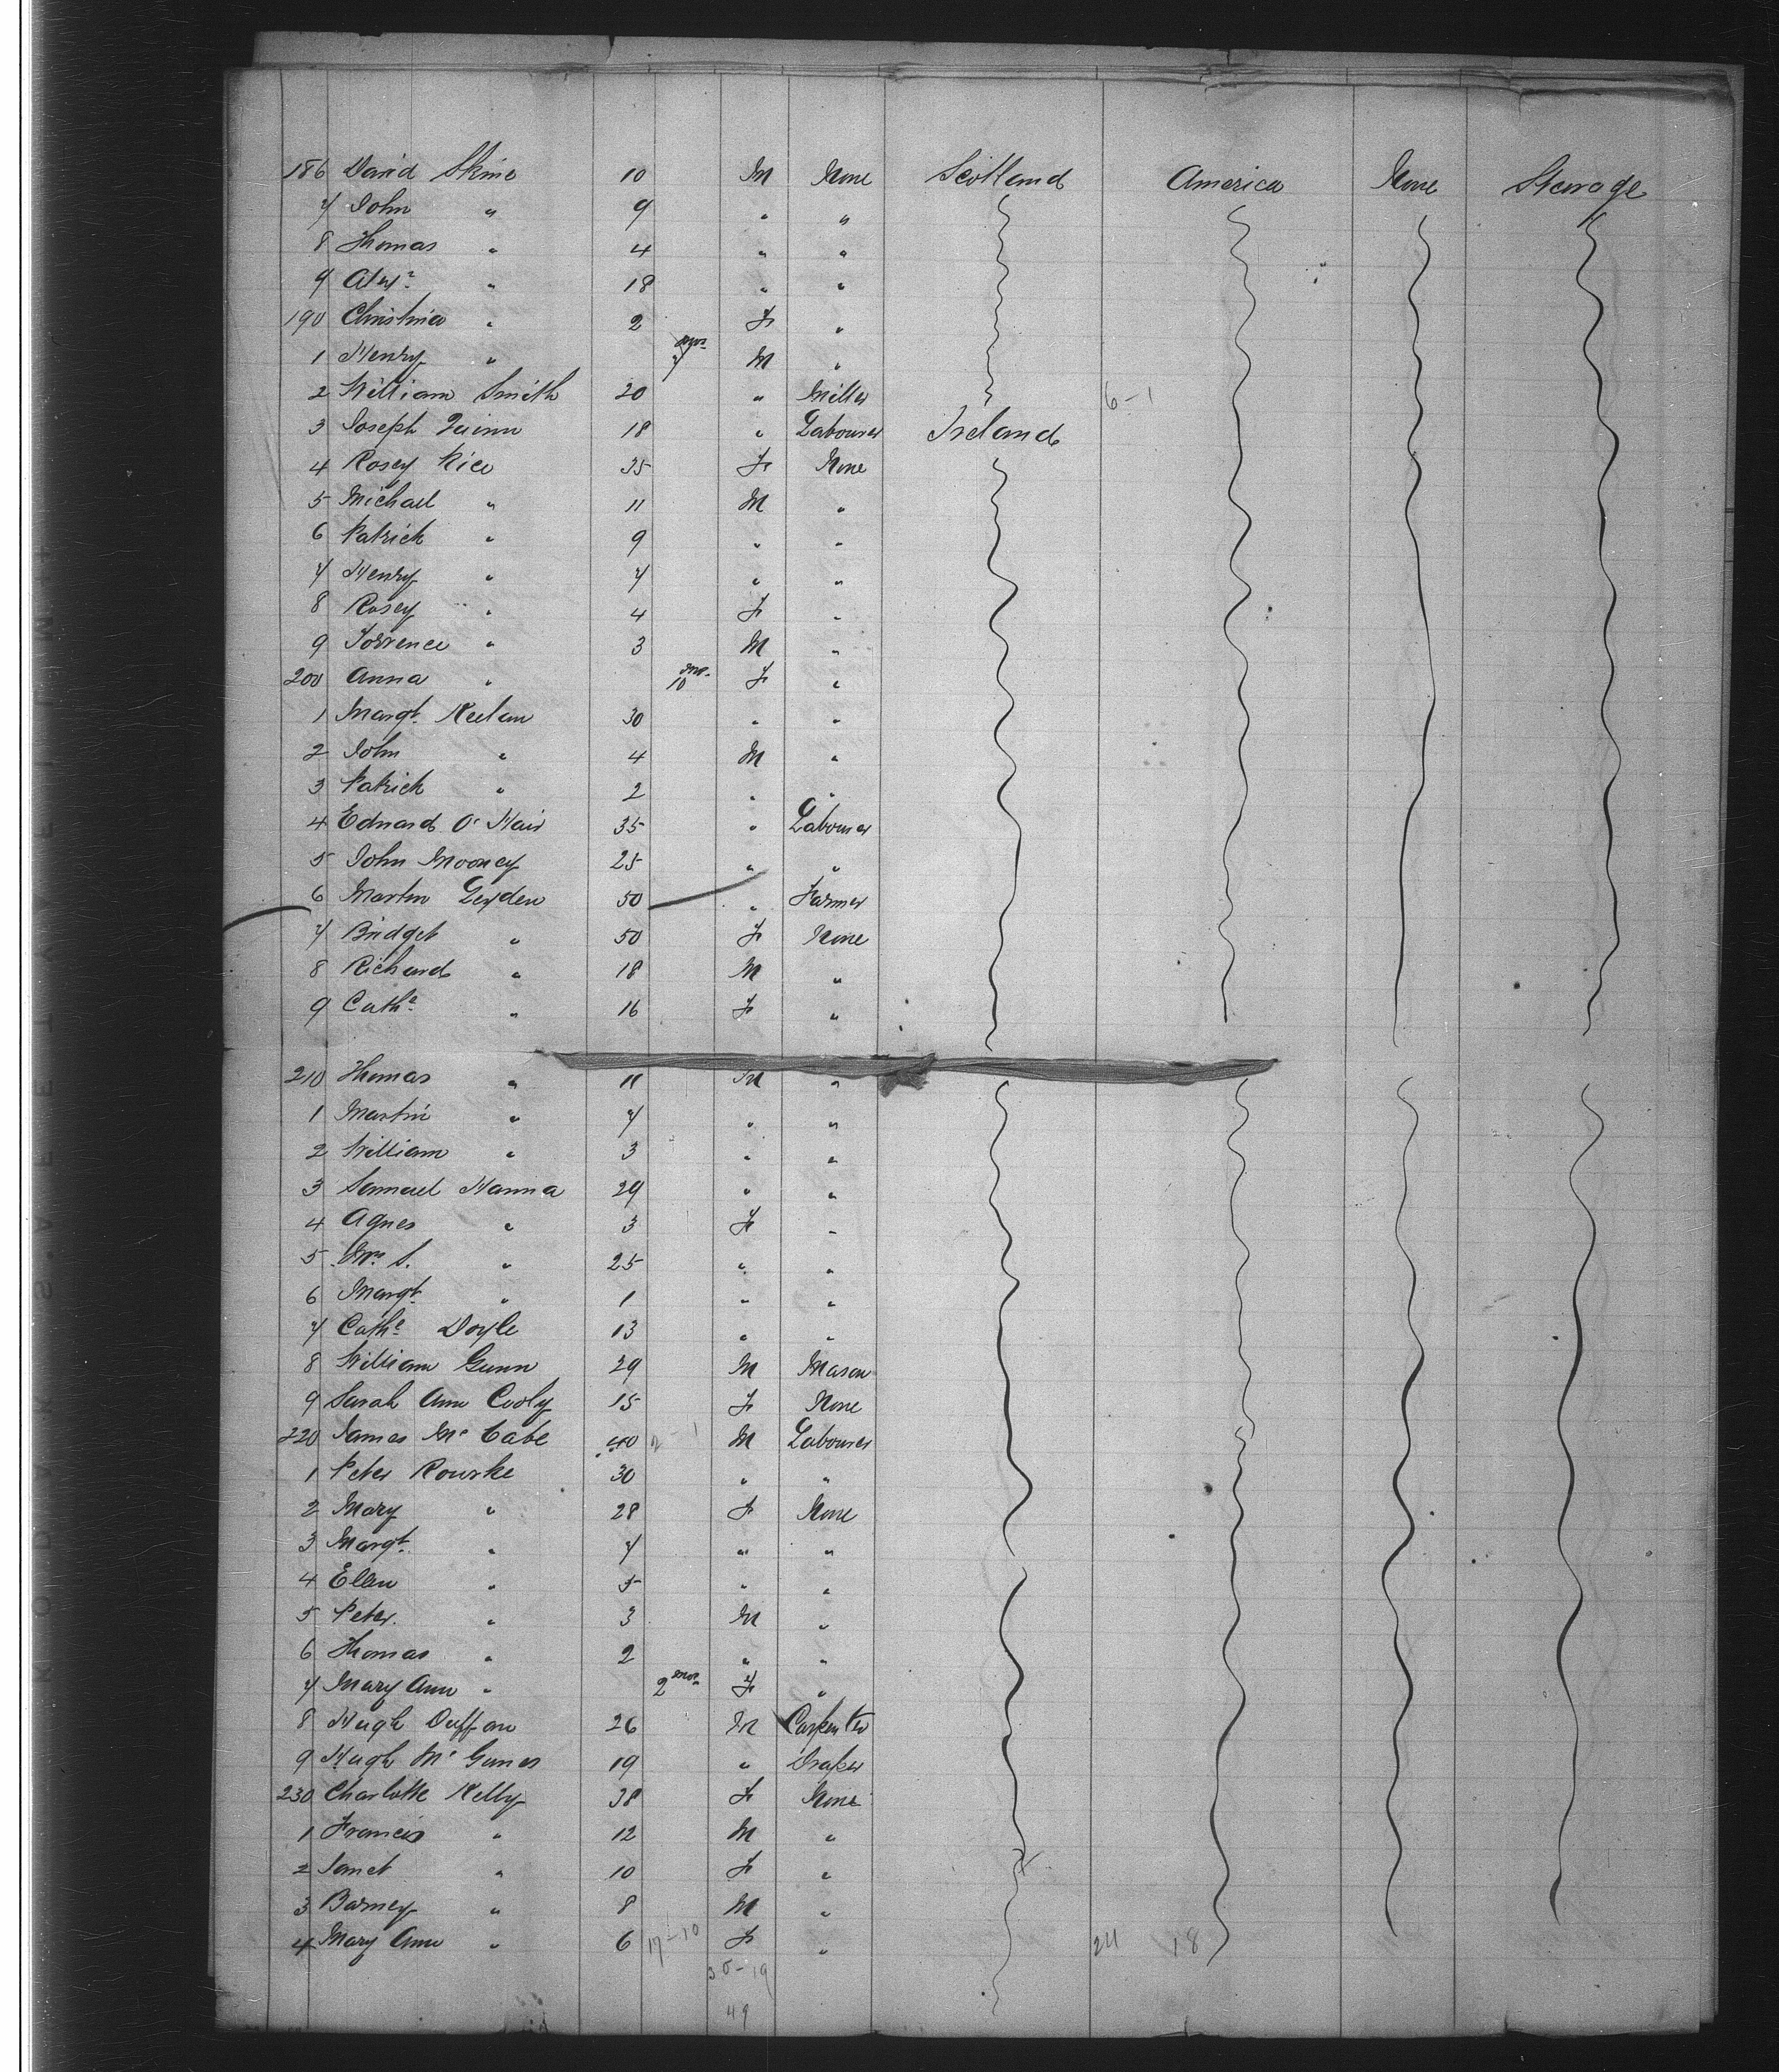 186 David Skine 10 M None Scotland America None Steerage
7 John " 9 " "
8 Thomas " 4 " "
9 Alexr " 18 " "
190 Christina " 2 F "
1 Henry " 7 mos M "
2 William Smith 20 " Miller 6-1
3 Joseph Quinn 18 " Labourer Ireland
4 Rosey Rice 35 F None
5 Michael " 11 M "
6 Patrick " 9 " "
7 Henry " 7 " "
8 Rosey " 4 F "
9 Torrence " 3 M "
200 Anna " 10 mos F "
1 Margt Keelan 30 " "
2 John " 4 M "
3 Patrick " 2 " "
4 Edward O'Hair 35 " Labourer
5 John Mooney 25 " "
6 Martin Leyden 50 " Farmer
7 Bridget " 50 F None
8 Richard " 18 M "
9 Cathe " 16 F "
210 Thomas " 11 M "
1 Martin " 7 " "
2 William " 3 " "
3 Samuel Hanna 29 " "
4 Agnes " 3 F "
5 Mrs S. " 25 " "
6 Margt " 1 " "
7 Cathe Doyle 13 " "
8 William Gunn 29 M Mason
9 Sarah Ann Cooly 15 F None
220 James McCabe 40 2-1 M Labourer
1 Peter Rourke 30 " "
2 Mary " 28 F None
3 Margt " 7 " "
4 Ellen " 5 " "
5 Peter " 3 M "
6 Thomas " 2 " "
7 Mary Ann " 2 mos F "
8 Hugh Duffan 26 M Carpenter
9 Hugh McGunes 19 " Draper
230 Charlotte Kelly 38 F None
1 Francis " 12 M "
2 Janet " 10 F "
3 Barney " 8 M "
4 Mary Ann " 6 17-10 F " 24 18
30-19
49